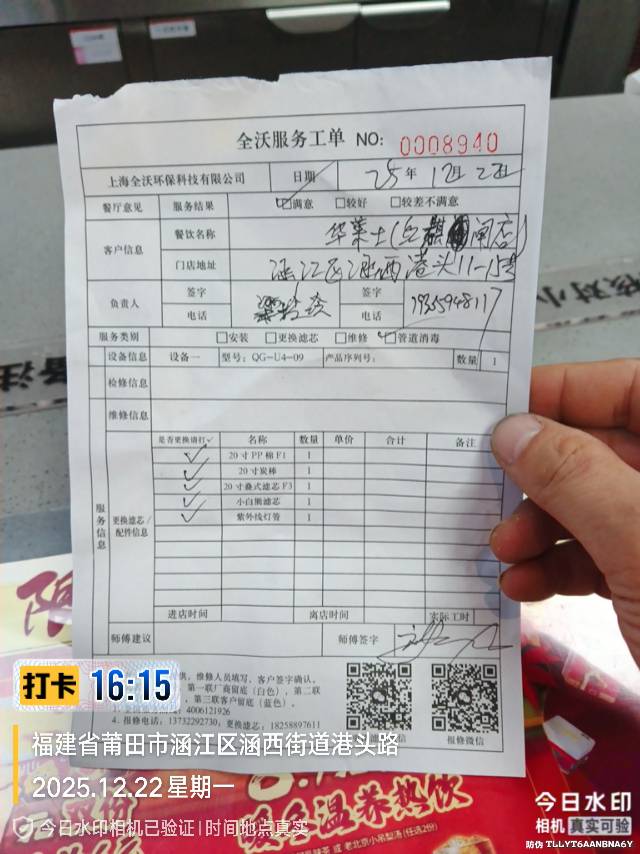 全沃服务工单 NO: 0008940
上海全沃环保科技有限公司 日期 25年12月22日
餐厅意见 服务结果 ☑满意 □较好 □较差不满意
客户信息 餐饮名称 华莱士(
闸店)
门店地址 涵江区涵西港头11-15号
负责人 签字 签字
电话 电话
服务类别 □安装 □更换滤芯 □维修 ☑管道消毒
设备信息 设备一 型号：QG-U4-09 产品序列号： 数量 1
检修信息
维修信息
服务信息
更换滤芯/配件信息
是否更换请打✓ 名称 数量 单价 合计 备注
✓ 20寸PP棉F1 1
✓ 20寸炭棒 1
✓ 20寸叠式滤芯F3 1
✓ 小白测滤芯 1
✓ 紫外线灯管 1
进店时间 离店时间 实际工时
师傅建议 师傅签字
供，维修人员填写、客户签字确认。
第一联厂商留底（白色），第二联
，第三联客户留底（蓝色）。
4006121926
4．报修电话：13732292730，更换滤芯：18258897611
报修微信
打卡 16:15
福建省莆田市涵江区涵西街道港头路
2025.12.22 星期一
今日水印相机已验证 | 时间地点真实
今日水印
相机 真实可验
防伪 TLLYT6AANBNA6Y
温养热饮
老北京小吊梨汤(任选2份)